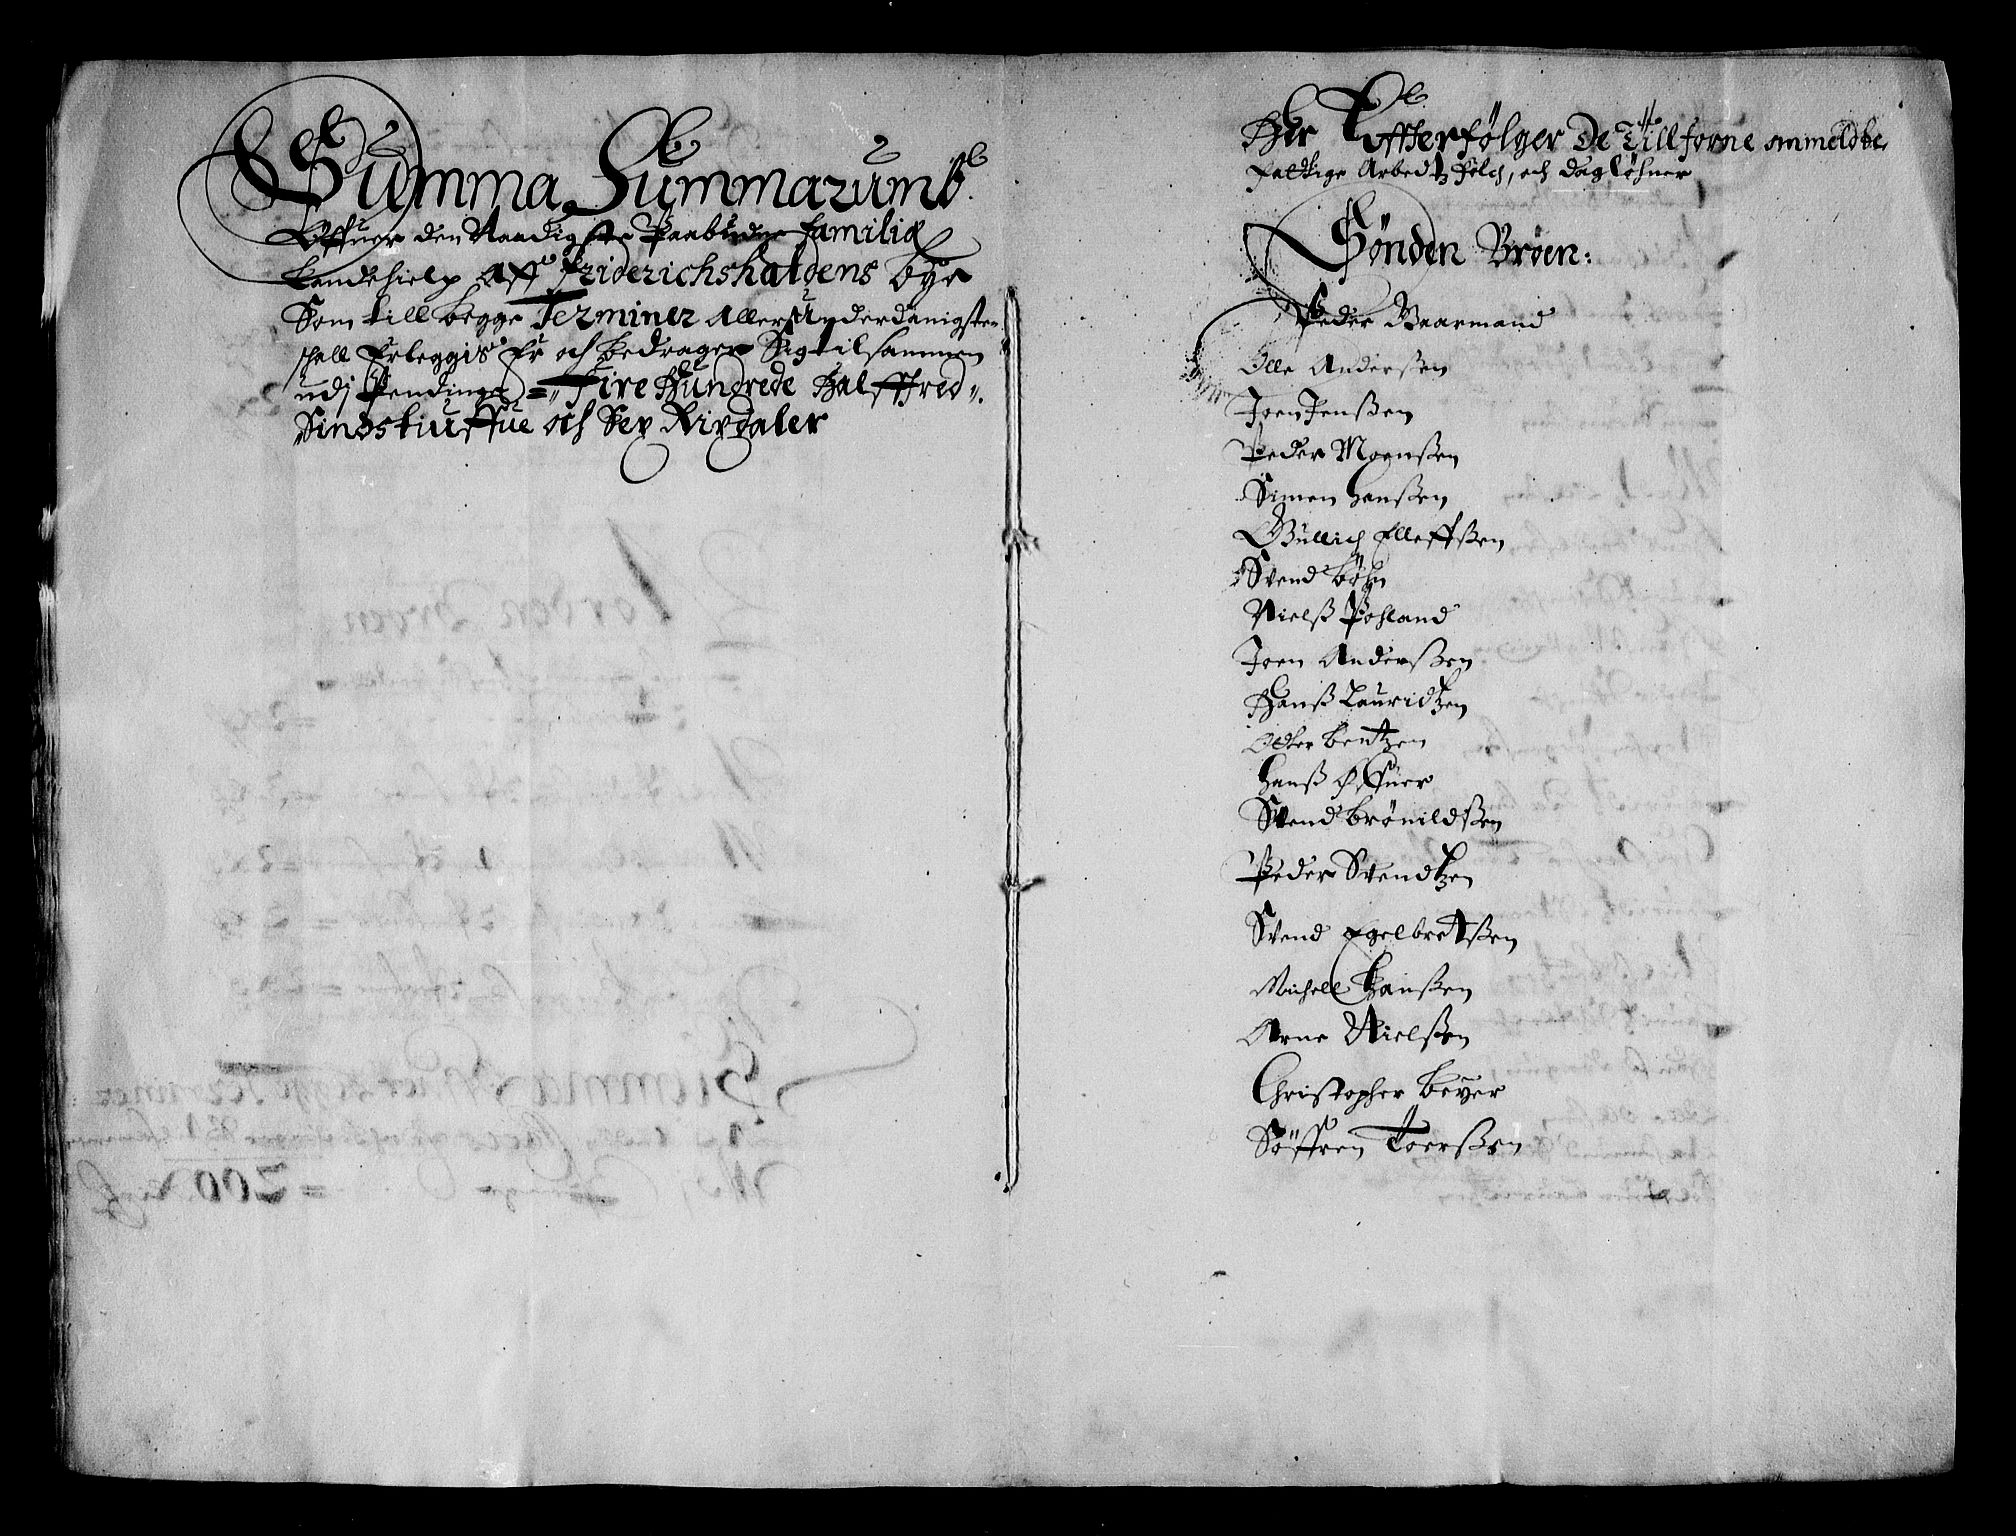 Summa Summarumb
Offuer den Naadigste Paabudne familie
Landehielp Aff Friderichshaldens bye
Som till begge Terminer Allerunderdanigsten
schall Erleggis Er och bedrager Sig tilsammen
udj Pendinge = Fire Hundrede Halfffred
Sindstiuffue och Sex Rixdaler
Her Effterfølger De Till forne anmeldte
fattige Arbedtz folch, och dagløhner
Sønden Broen:
Peder Baarmand
Olle Anderßen
Joen Jenßen
Peder Moenßen
Simen Hanßen
Gullich Elleffßen
Svend Bøhn
Nielß Pohland
Joen Anderßen
Hanß Lauridtzen
Otter Bentzen
Hanß Øffuer
Svend Brønildßen
Peder Svendtzen
Svend Egelbretßen
Michell Hanßen
Arne Nielßen
Christopher Beyer
Søffren Toerßen